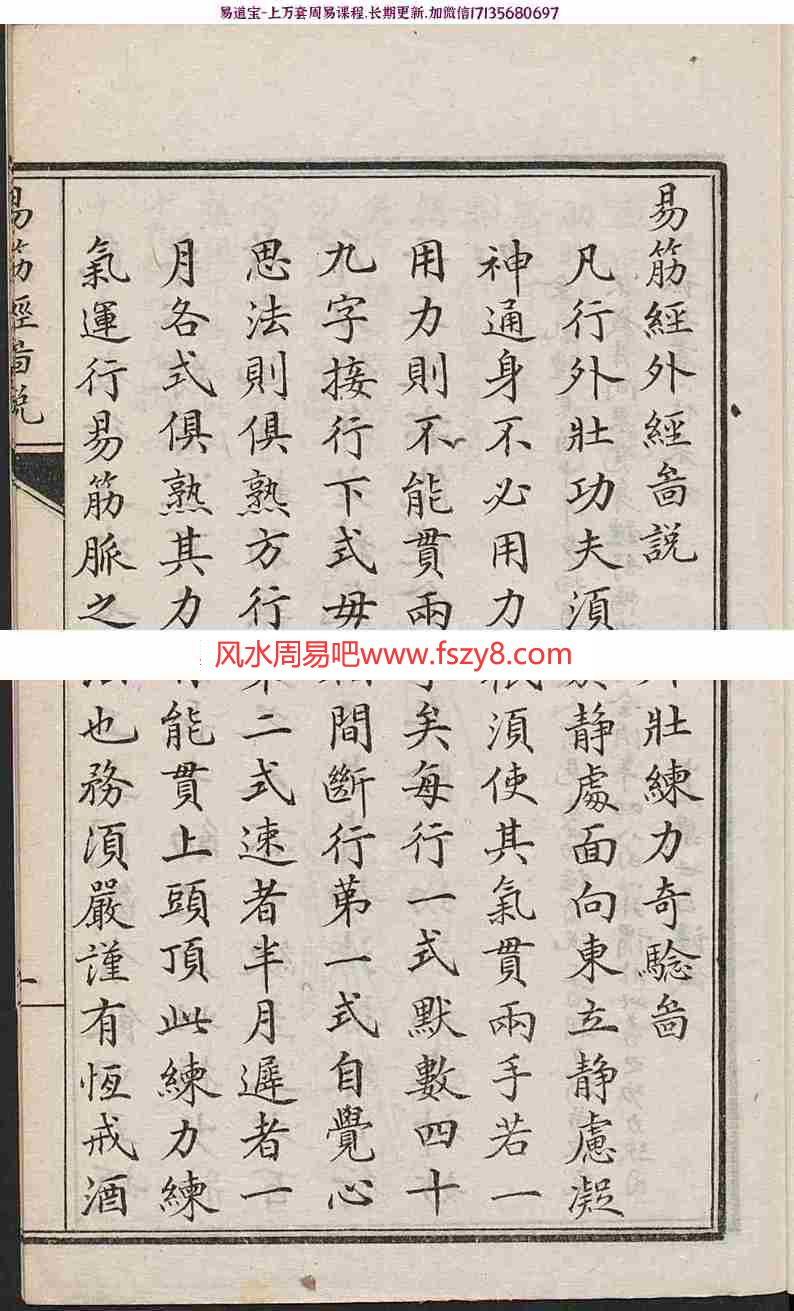 易道宝-上万套周易课程,长期更新,加微信17135680697
易筋經外經啚説外壯練力奇騐啚
凡行外壯功夫湏於静處面向東立静慮凝
神通身不必用力祇湏使其氣貫兩手若一
用力則不能貫兩手矣每行一式默數四十
九字接行下式毋相間斷行第一式自覺心
思法則俱熟方行第二式速者半月遲者一
月各式俱熟其力能貫上頭頂此練力練
氣運行易筋脈之法也務湏嚴謹有恆戒酒
易筋經啚説
一
风水周易吧www.fszy8.com